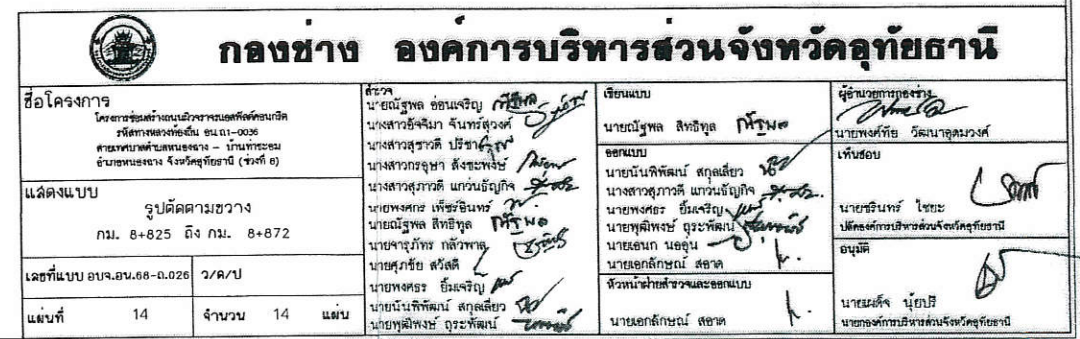 กองช่าง องค์การบริหารส่วนจังหวัดอุทัยธานี
ชื่อโครงการ
โครงการซ่อมสร้างถนนผิวจราจรแอสฟัลต์คอนกรีต
รหัสทางหลวงท้องถิ่น อน.ถ1-0036
สายเทศบาลตำบลหนองฉาง - บ้านท่าชะอม
อำเภอหนองฉาง จังหวัดอุทัยธานี (ช่วงที่ 8)
แสดงแบบ
รูปตัดตามขวาง
กม. 8+825 ถึง กม. 8+872
เลขที่แบบ อบจ.อน.68-ถ.026 ว/ด/ป
แผ่นที่ 14 จำนวน 14 แผ่น
สำรวจ
นายณัฐพล อ่อนเจริญ
นางสาวอัจจิมา จันทร์สุวงศ์
นางสาวสุชาวดี ปรีชา
นางสาวกรอุษา สังขะพงษ์
นางสาวสุภาวดี แก่วนธัญกิจ
นายพงศกร เพ็ชร์อินทร์
นายณัฐพล สิทธิทูล
นายจารุภัทร กล้วพาล
นายศุภชัย สวัสดี
นายพงศธร ยิ้มเจริญ
นายนันพิพัฒน์ สกุลเลี่ยว
นายพุฒิพงษ์ ถุระพัฒน์
เขียนแบบ
นายณัฐพล สิทธิทูล
ออกแบบ
นายนันพิพัฒน์ สกุลเลี่ยว
นางสาวสุภาวดี แก่วนธัญกิจ
นายพงศธร ยิ้มเจริญ
นายพุฒิพงษ์ ถุระพัฒน์
นายเอนก นออุ่น
นายเอกลักษณ์ สอาด
หัวหน้าฝ่ายสำรวจและออกแบบ
นายเอกลักษณ์ สอาด
ผู้อำนวยการกองช่าง
นายพงศ์ทัย วัฒนาอุดมวงศ์
เห็นชอบ
นายชรินทร์ ไชยะ
ปลัดองค์การบริหารส่วนจังหวัดอุทัยธานี
อนุมัติ
นายเผด็จ นุ้ยปรี
นายกองค์การบริหารส่วนจังหวัดอุทัยธานี